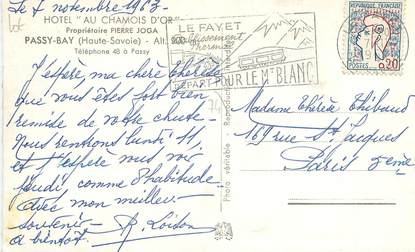 Le 7 novembre 1963 -
HOTEL "AU CHAMOIS D'OR"
Propriétaire PIERRE JOGA
PASSY-BAY (Haute-Savoie) - Alt. 900
Téléphone 48 à Passy
J'espère, ma chère Thérèse
que vous êtes fort bien
remise de votre chute -
Nous rentrons lundi 11,
et j'espère vous voir
jeudi, comme d'habitude -
avec mon meilleur
souvenir -
à bientôt
R. Loison
LE FAYET
DÉPART POUR LE Mt BLANC
Photo véritable - Reproduction
REPUBLIQUE FRANCAISE
0,20
POSTES
Madame Thérèse Thibaud
169 rue St. Jacques
Paris 5eme